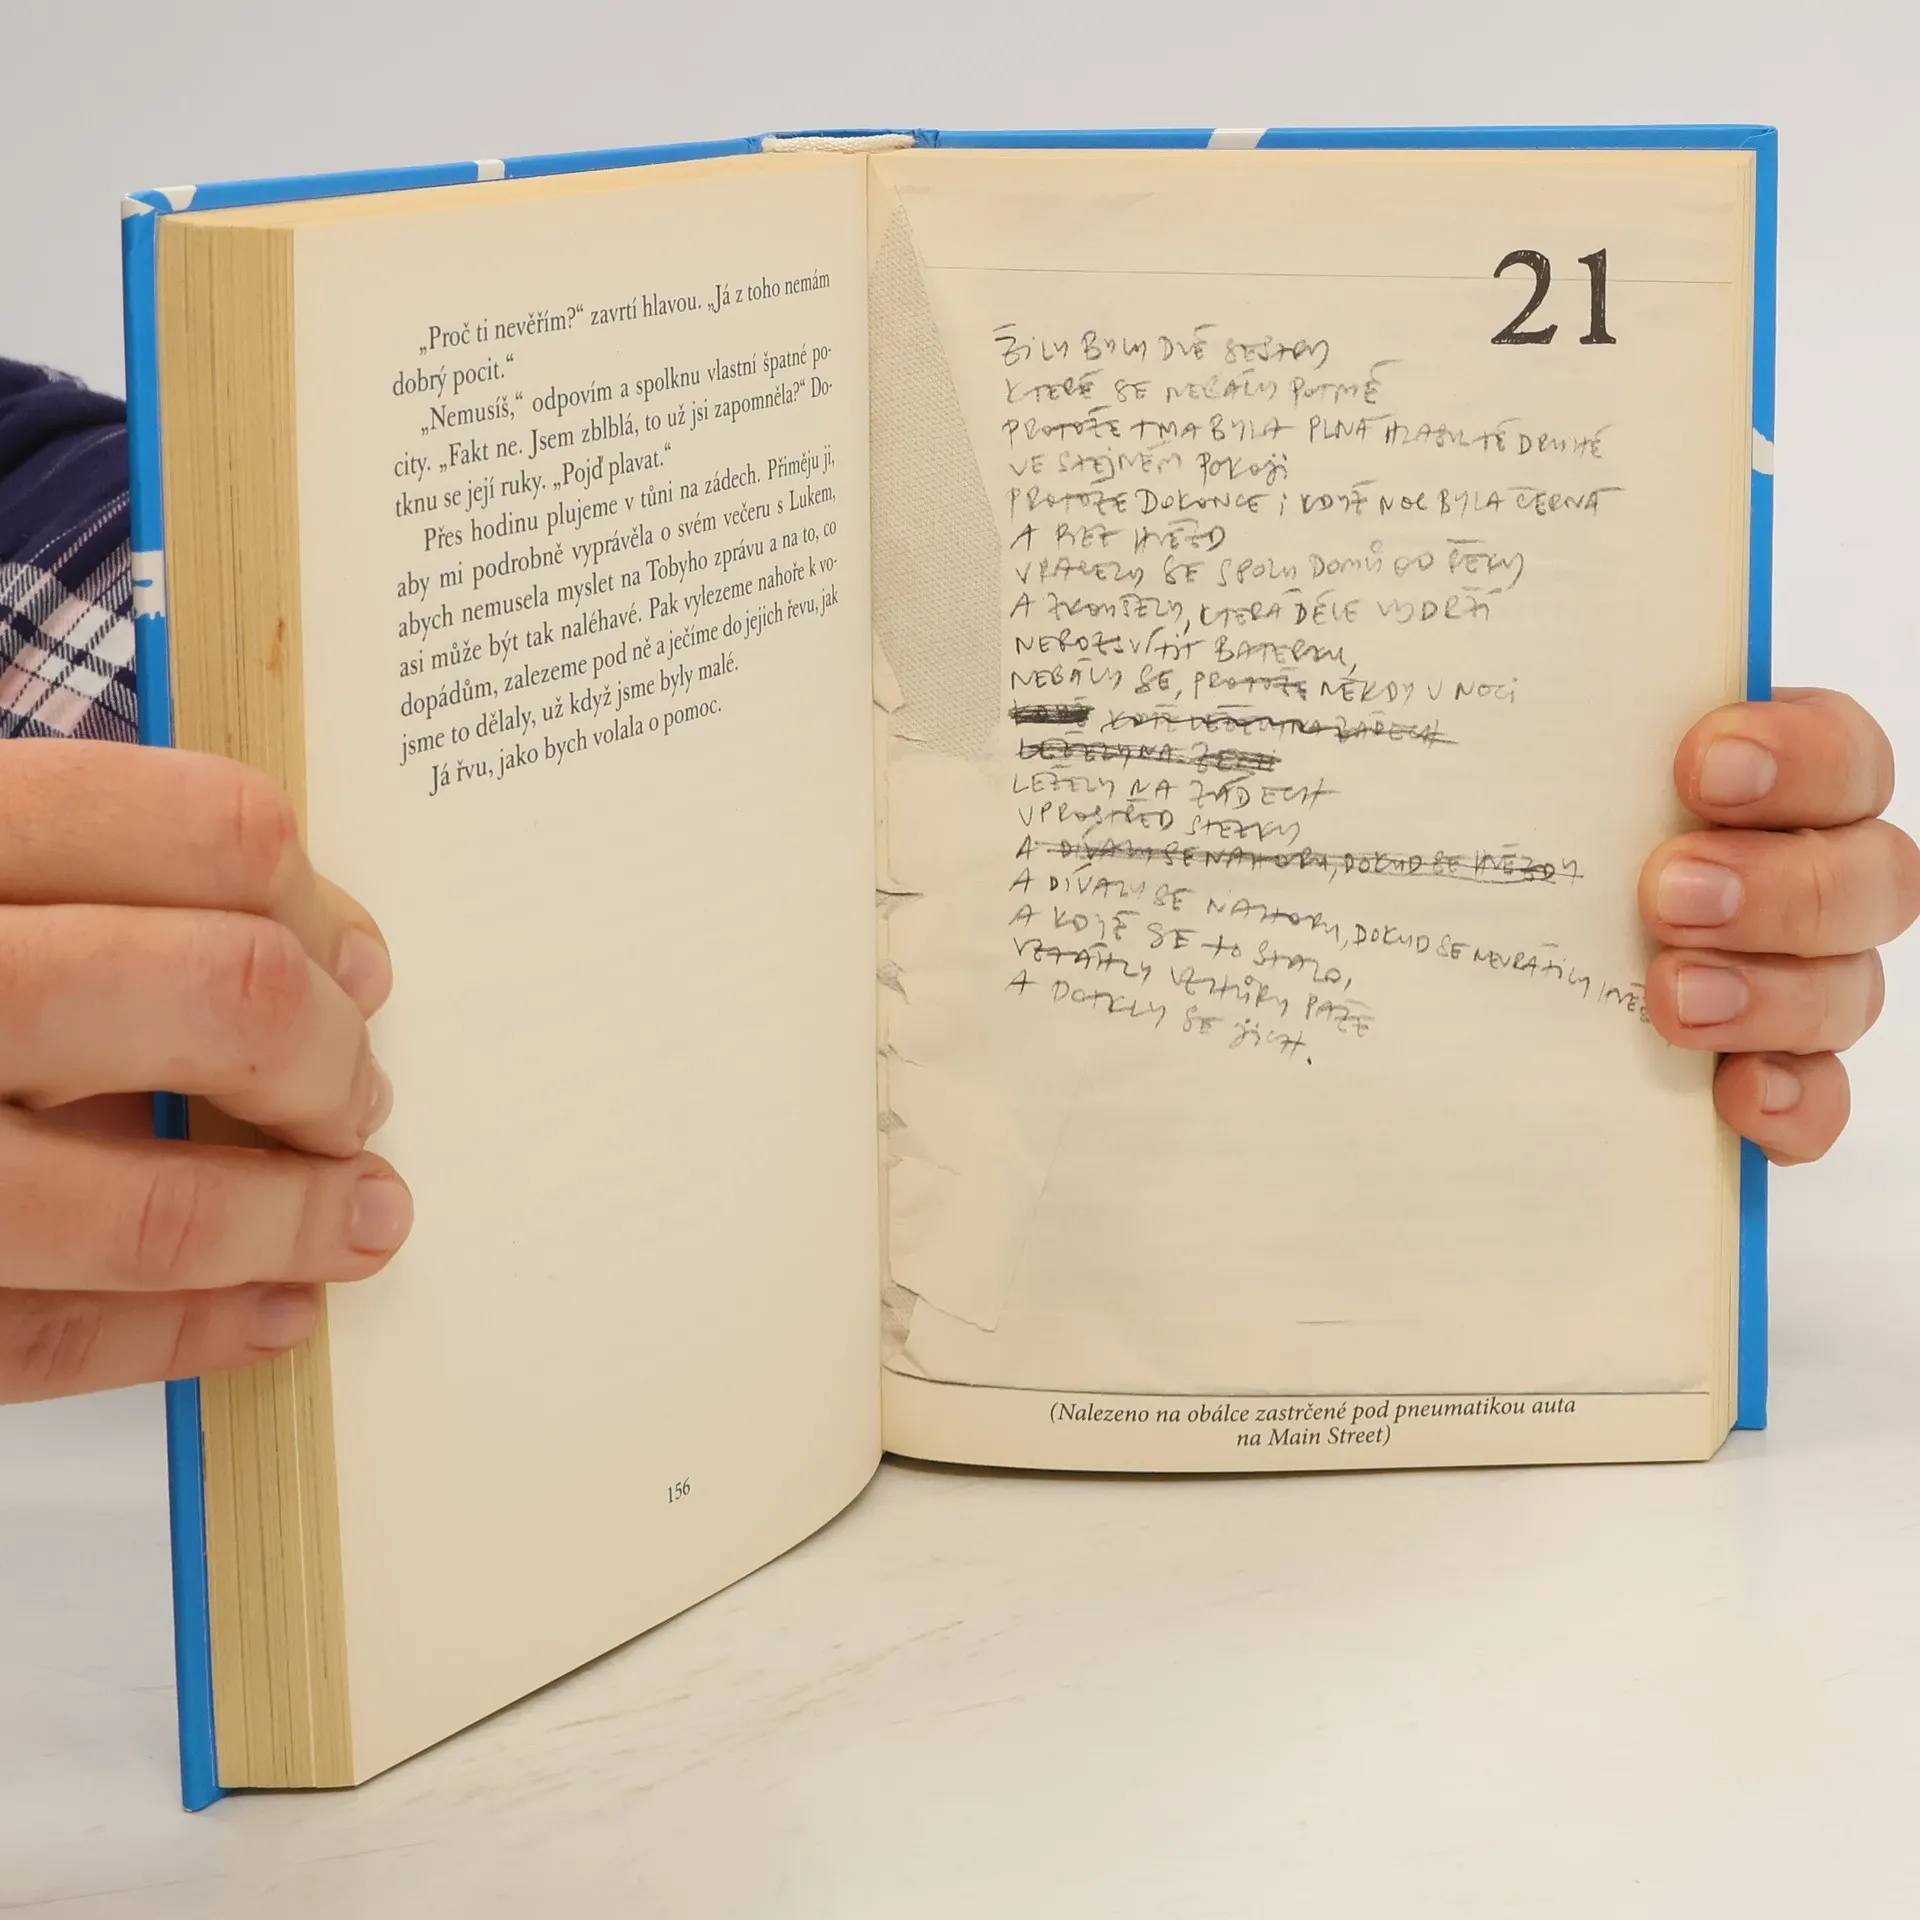 „Proč ti nevěřím?“ zavrtí hlavou. „Já z toho nemám
dobrý pocit.“
„Nemusíš,“ odpovím a spolknu vlastní špatné po-
city. „Fakt ne. Jsem zblblá, to už jsi zapomněla?“ Do-
tknu se její ruky. „Pojď plavat.“
Přes hodinu plujeme v tůni na zádech. Přiměju ji,
aby mi podrobně vyprávěla o svém večeru s Lukem,
abych nemusela myslet na Tobyho zprávu a na to, co
asi může být tak naléhavé. Pak vylezeme nahoře k vo-
dopádům, zalezeme pod ně a ječíme do jejich řevu, jak
jsme to dělaly, už když jsme byly malé.
Já řvu, jako bych volala o pomoc.
156
21
ŽILY BYLY DVĚ SESTRY
KTERÉ SE NEBÁLY POTMĚ
PROTOŽE TMA BYLA PLNÁ HLASU TÉ DRUHÉ
VE STEJNÉM POKOJI
PROTOŽE DOKONCE I KDYŽ NOC BYLA ČERNÁ
A BEZ HVĚZD
VRACELY SE SPOLU DOMŮ OD ŘEKY
A ZKOUŠELY, KTERÁ DÉLE VYDRŽÍ
NEROZSVÍTIT BATERKU,
NEBÁLY SE, PROTOŽE NĚKDY V NOCI
KDYŽ LEŽELY NA ZÁDECH
LEŽELY NA ZEMI
LEŽELY NA ZÁDECH
UPROSTŘED STEZKY
A DÍVALY SE NAHORU, DOKUD SE HVĚZDY
A DÍVALY SE NAHORU, DOKUD SE NEVRÁTILY
A KDYŽ SE TO STALO,
VZTÁHLY VZHŮRU PAŽE
A DOTKLY SE JICH.
(Nalezeno na obálce zastrčené pod pneumatikou auta
na Main Street)